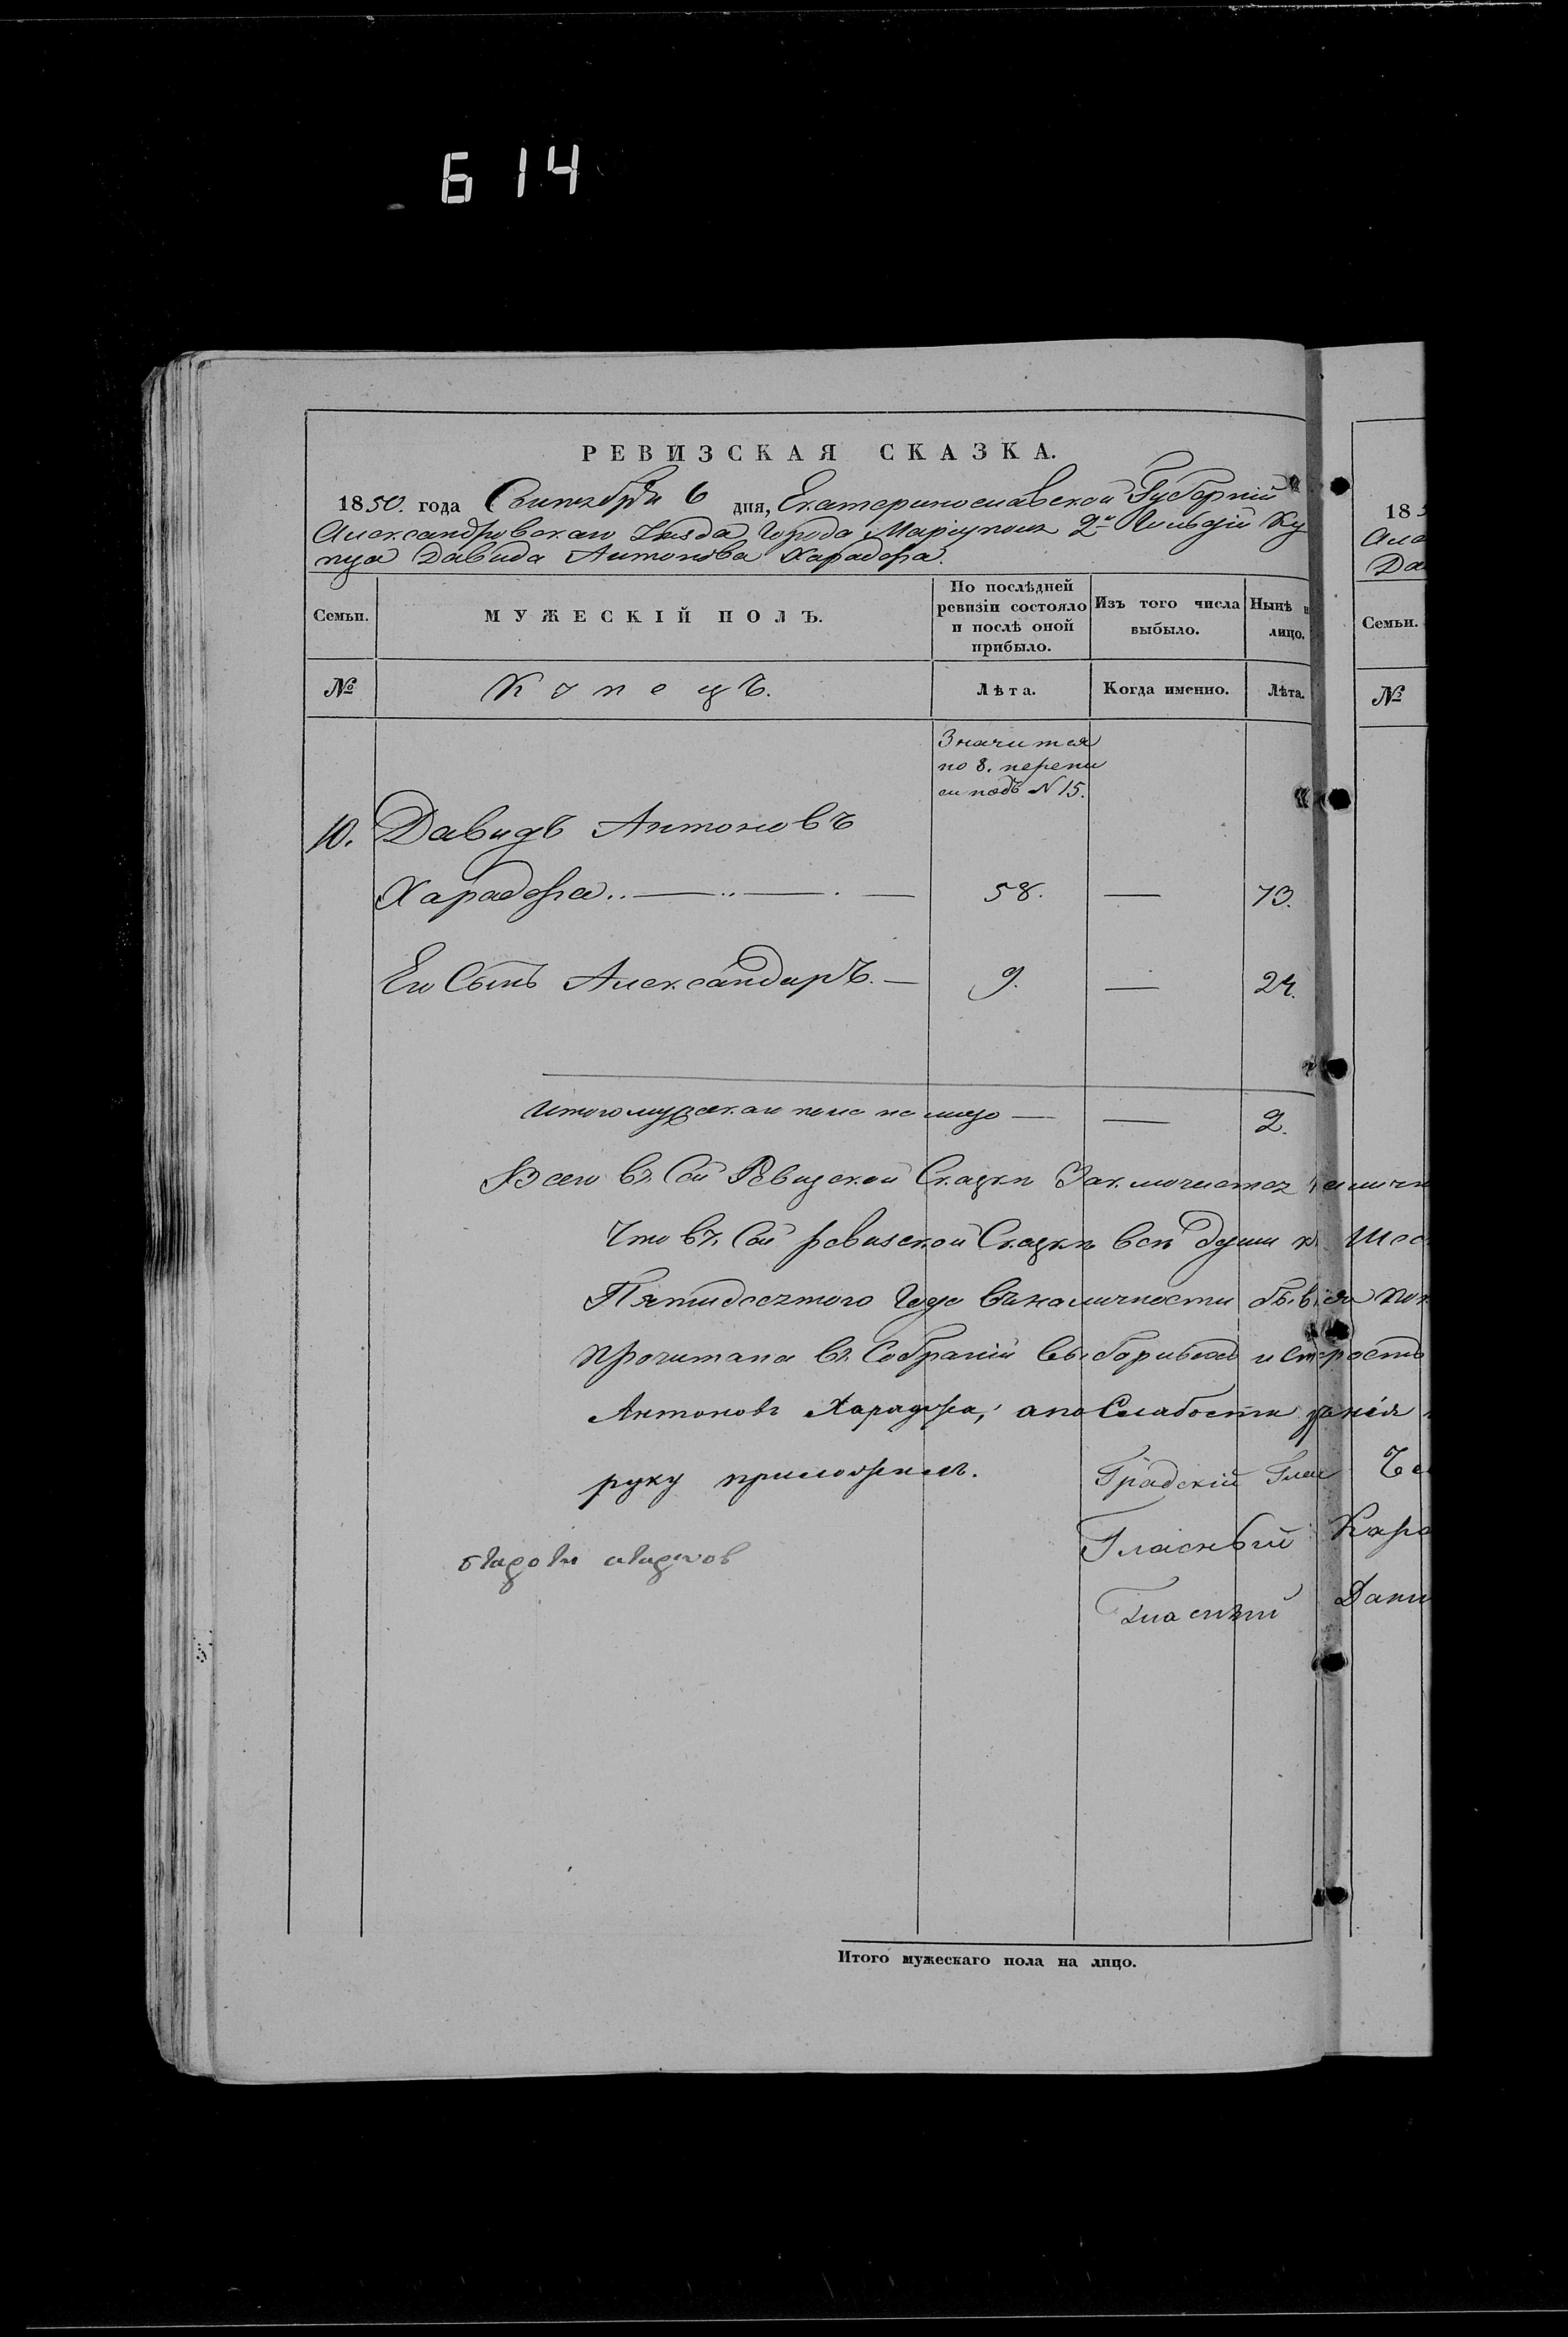 614
РЕВИЗСКАЯ СКАЗКА.
1850. года Сентября 6 дня, Екатеринославской Губерніи
Александровскаго Уезда Города Маріуполя 2й Гильдіи Ку
пца Давида Антонова Хараджа.
Семьи.
МУЖЕСКІЙ ПОЛЪ.
По послѣдней ревизіи состояло и послѣ оной прибыло.
Изъ того числа выбыло.
Нынѣ н лицо.
№
Купецъ.
Лѣта.
Когда именно.
Лѣта.
Значится
по 8. перепи
си подъ N 15.
10. Давидъ Антоновъ
Хараджа.. — 58. — 73.
Его Сынъ Александиръ. — 9. — 24.
Итого мужескаго пола на лицо — — 2.
Всего въ Сей Ревизской Сказки Заключается
Что въ Сей ревизской Сказкѣ всѣ души
Пятидесятого Года въ наличности
Прочитана въ Собраніи Выборныхъ и
Антоновъ Хараджа, а по Слабости зрѣнія
руку приложилъ.
Градскій Глав
Гласный
Гласный
Итого мужескаго пола на лицо.
18
Але
Да
Семьи.
№
Кара
Дани